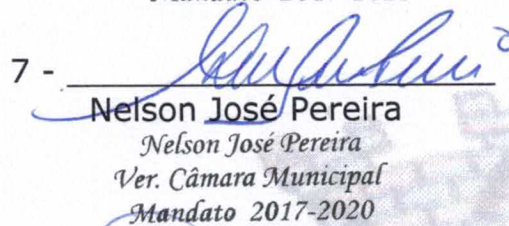 7 -
Nelson José Pereira
Nelson José Pereira
Ver. Câmara Municipal
Mandato 2017-2020